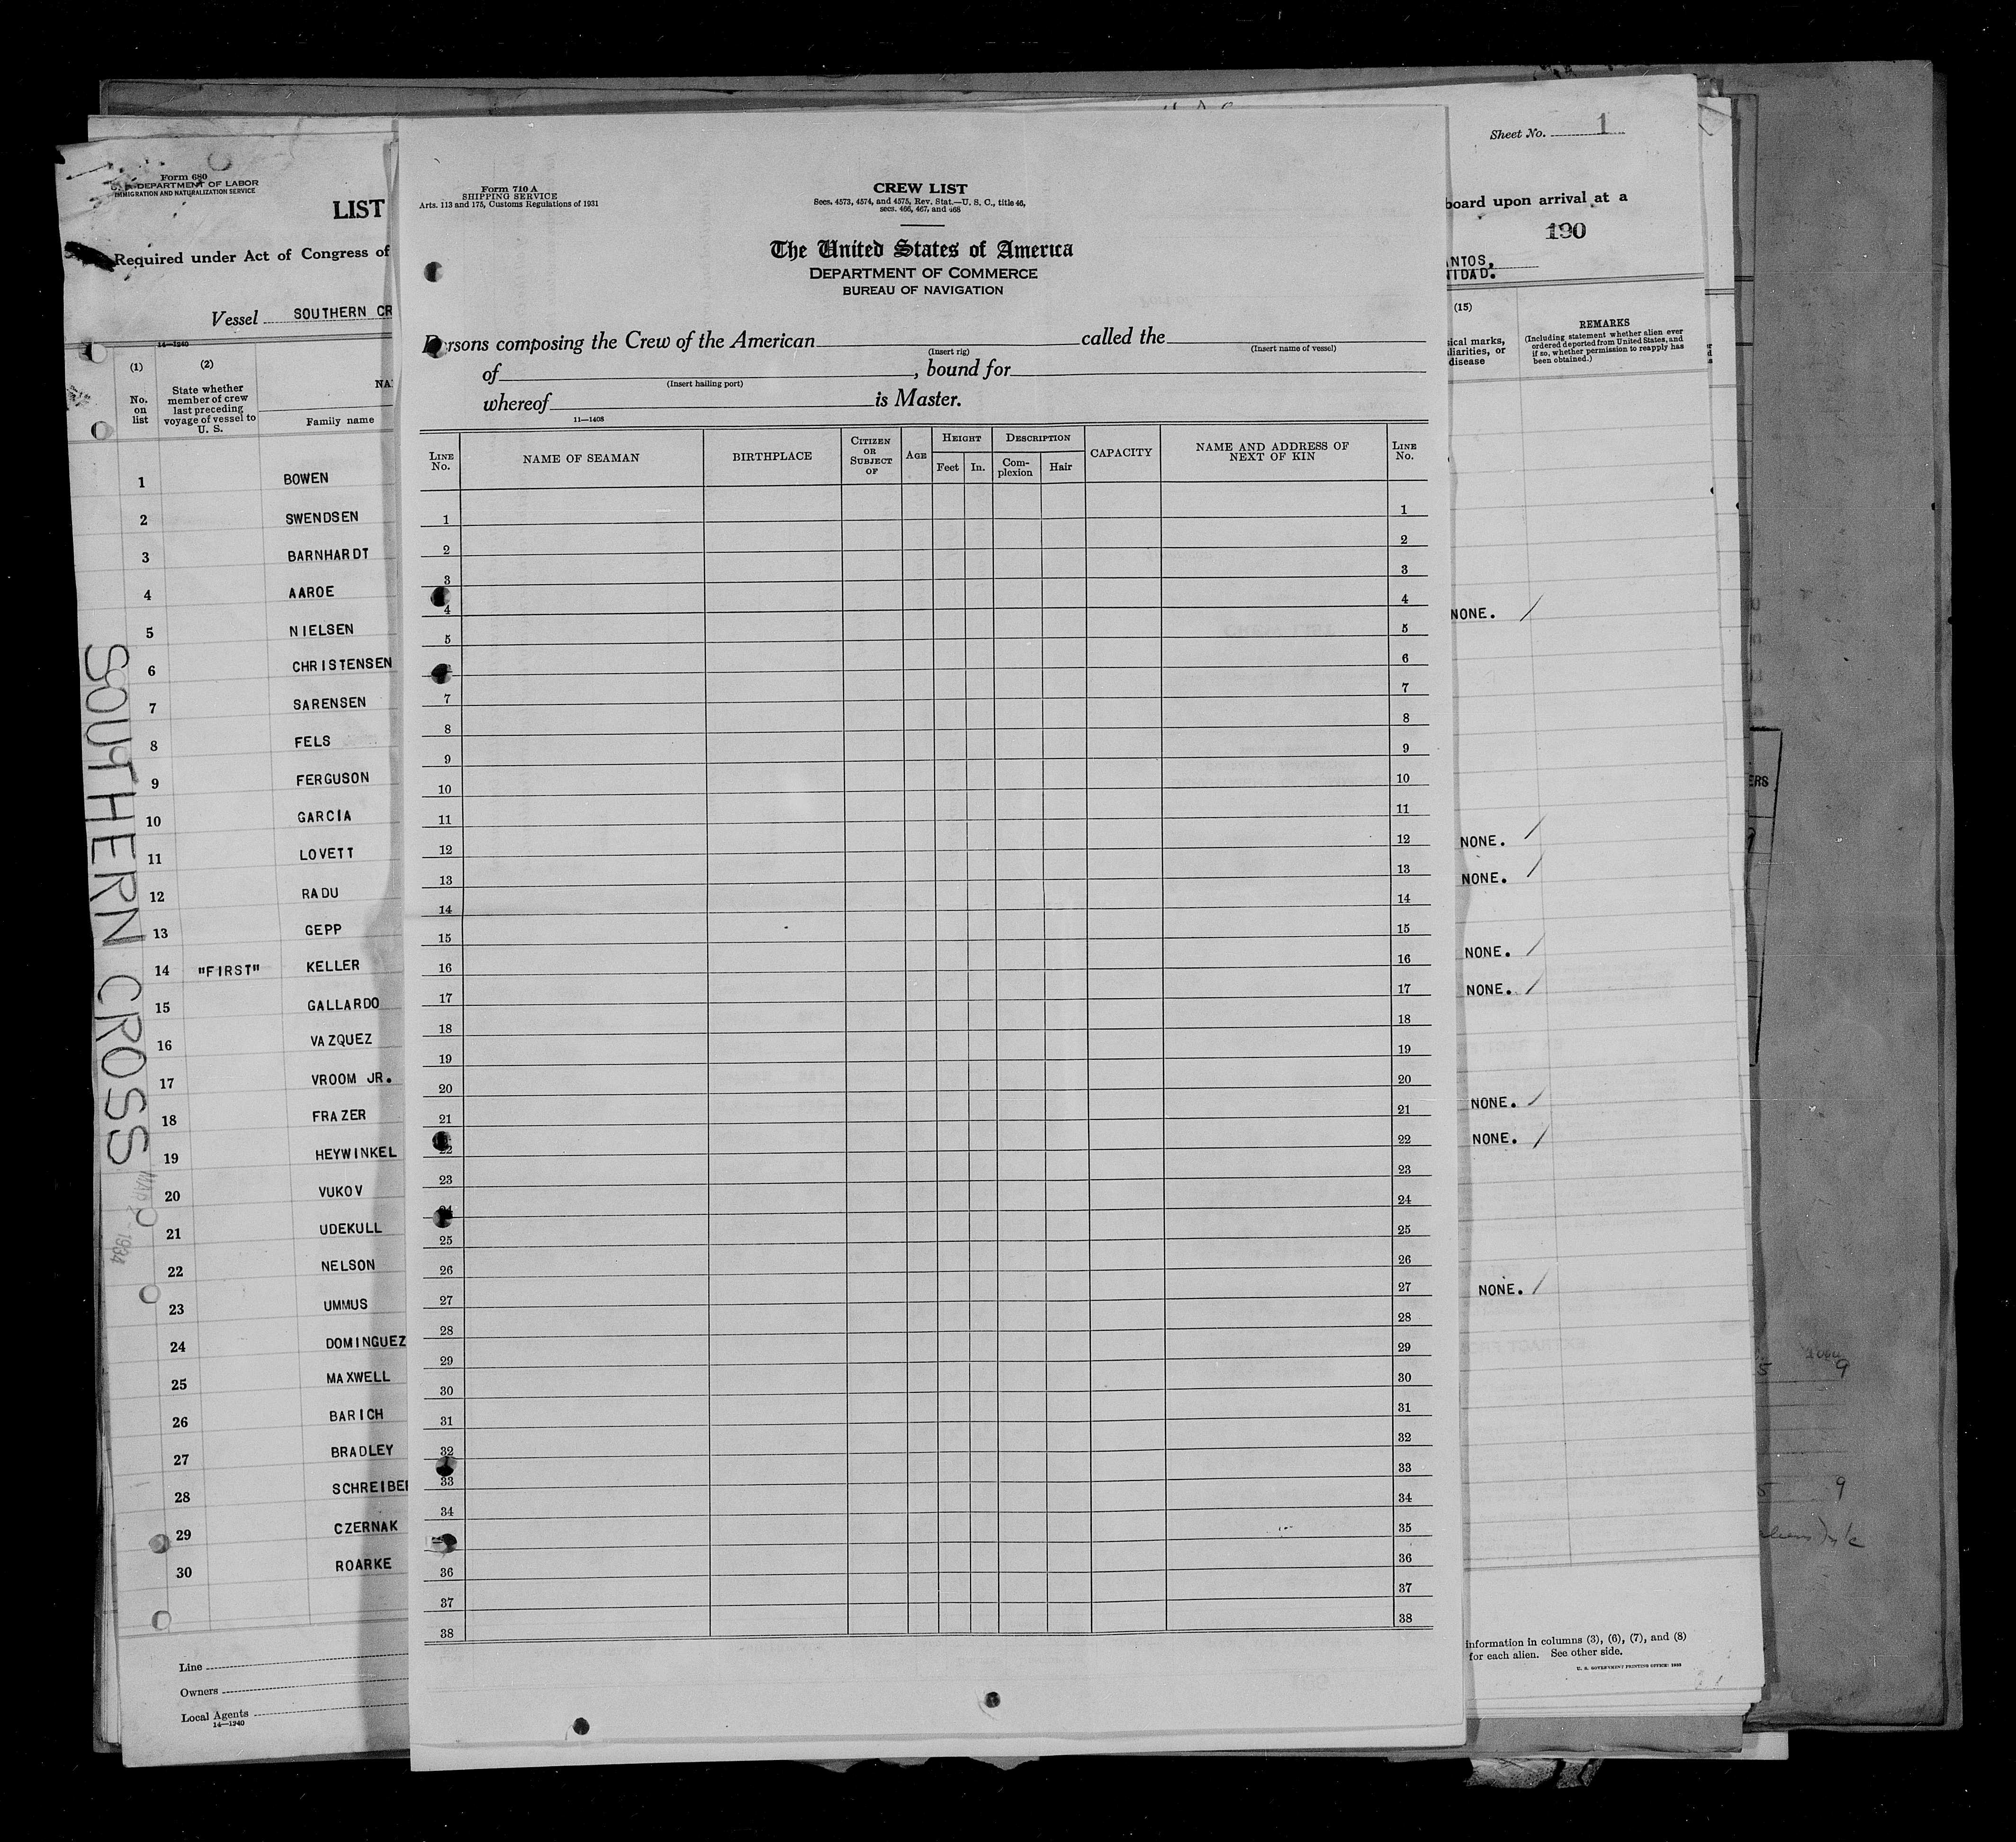 Form 680
U. S. DEPARTMENT OF LABOR
IMMIGRATION AND NATURALIZATION SERVICE
LIST
Required under Act of Congress of
Vessel SOUTHERN CR
14—1240
(1)
No. on list
(2)
State whether member of crew last preceding voyage of vessel to U. S.
NA
Family name
1 BOWEN
2 SWENDSEN
3 BARNHARDT
4 AAROE
5 NIELSEN
6 CHRISTENSEN
7 SARENSEN
8 FELS
9 FERGUSON
10 GARCIA
11 LOVETT
12 RADU
13 GEPP
14 "FIRST" KELLER
15 GALLARDO
16 VAZQUEZ
17 VROOM JR.
18 FRAZER
19 HEYWINKEL
20 VUKOV
21 UDEKULL
22 NELSON
23 UMMUS
24 DOMINGUEZ
25 MAXWELL
26 BARICH
27 BRADLEY
28 SCHREIBE
29 CZERNAK
30 ROARKE
Line
Owners
Local Agents
14—1240
SOUTHERN CROSS
1934
Form 710 A
SHIPPING SERVICE
Arts. 113 and 175, Customs Regulations of 1931
CREW LIST
Secs. 4573, 4574, and 4575, Rev. Stat.—U. S. C., title 46,
secs. 466, 467, and 468
The United States of America
DEPARTMENT OF COMMERCE
BUREAU OF NAVIGATION
Persons composing the Crew of the American called the
(Insert rig) (Insert name of vessel)
of , bound for
(Insert hailing port)
whereof is Master.
11—1408
LINE No.
NAME OF SEAMAN
BIRTHPLACE
CITIZEN OR SUBJECT OF
AGE
HEIGHT
Feet In.
DESCRIPTION
Complexion Hair
CAPACITY
NAME AND ADDRESS OF NEXT OF KIN
LINE No.
1 1
2 2
3 3
4 4
5 5
6
7 7
8 8
9 9
10 10
11 11
12 12
13 13
14 14
15 15
16 16
17 17
18 18
19 19
20 20
21 21
22 22
23 23
24 24
25 25
26 26
27 27
28 28
29 29
30 30
31 31
32 32
33 33
34 34
35
36 36
37 37
38 38
Sheet No. 1
board upon arrival at a
190
NTOS,
IDAD.
(15)
sical marks,
liarities, or
disease
REMARKS
(Including statement whether alien ever ordered deported from United States, and if so, whether permission to reapply has been obtained.)
NONE. /
NONE. /
NONE. /
NONE. /
NONE. /
NONE. /
NONE. /
NONE. /
information in columns (3), (6), (7), and (8)
for each alien. See other side.
U. S. GOVERNMENT PRINTING OFFICE: 1933
ERS
5 9
9